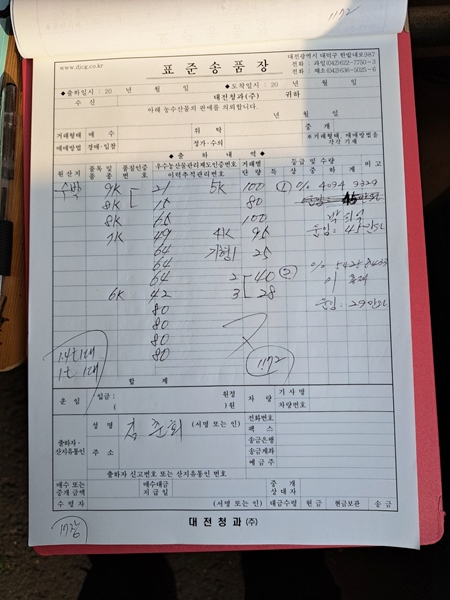 1172
www.djcg.co.kr
표 준 송 품 장
대전광역시 대덕구 한밭대로987
전화 : 과일(042)622-7750~3
전화 : 채소(042)636-5025~6
◆출하일시 : 20 년 월 일
◆도착일시 : 20 년 월 일
수 신 대전청과(주) 귀하
아래 농수산물의 판매를 의뢰합니다.
년 월 일
거래형태 매 수 위 탁 중 개
매매방법 경매·입찰 정가·수의
※거래형태, 매매방법을 각각 기재
◆ 출 하 내 역 ◆
원산지 품목 및 품종 품질인증번호 우수농산물관리제도인증번호 이력추적관리번호 거래별단량 등급 및 수량 특 상 중 하 계 비고
수박 9K 21 5K 100 ① 4094 9329
8K 15 80 45만원
8K 100
7K 49 4K 95 운임 : 45만원
64 기형 25
64 5425 8433
64 2 40 ②
6K 42 3 28 운임 : 29만원
80
80
80
80
1172
1.4t 1대
1t 1대
합 계
운 임 일금 : 원정
( )원
차 량 기 사 명
차량번호
출하자·산지유통인
성 명 (서명 또는 인)
주 소
전화번호
팩 스
송금은행
송금계좌
예 금 주
출하자 신고번호 또는 산지유통인 번호
매수 또는 중개 금액 매수대금 지급일 중 개 상 대 자
수 령 자 (서명 또는 인) 대금수령 현 금 현금보관 송 금
대 전 청 과 (주)